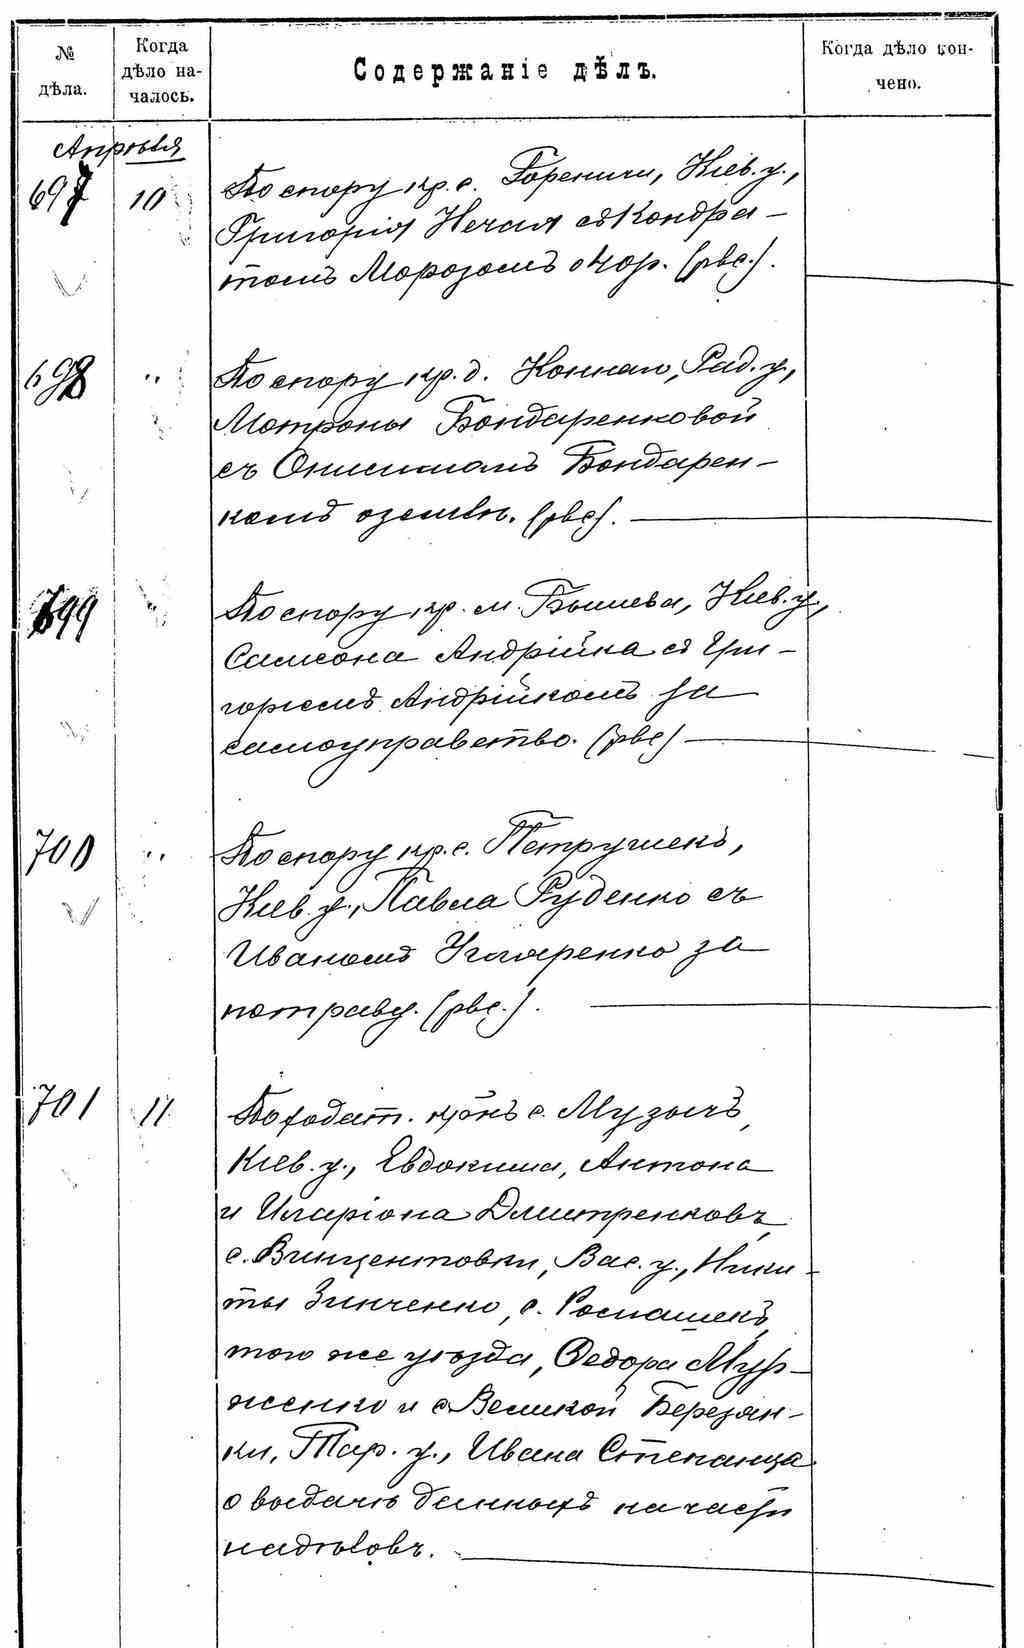 № дѣла.
Когда дѣло началось.
Содержаніе дѣлъ.
Когда дѣло кончено.
Апрѣля
697 10 По спору кр. с. Гореничи, Кіев. у.,
Григорія Нечая съ Кондра-
томъ Морозомъ о чор. (рвс.).
698 " По спору кр. д. Рад. у.,
Мотроны Бондаренковой
съ Онисимомъ Бондарен-
комъ о землѣ. (рвс).
699 По спору кр. м. Бышева, Кіев. у.,
Самсона Андрійка съ Гри-
горіемъ Андрійкомъ за
самоуправство. (рвс)
700 " По спору кр. с. Петрушекъ,
Кіев. у., Павла Руденко съ
Иваномъ за
потраву. (рвс.).
701 11 По ходат. крнъ с. Музычъ,
Кіев. у., Евдокима, Антона
и Иларіона Дмитренковъ,
с. Винцентовки, Вас. у., Ники-
ты Зинченко, с. Ромашекъ,
того же уѣзда, Ѳедора
женко и с. Великой Березян-
ки, Тар. у., Ивана Степанца
о выдачѣ данныхъ на части
надѣловъ.